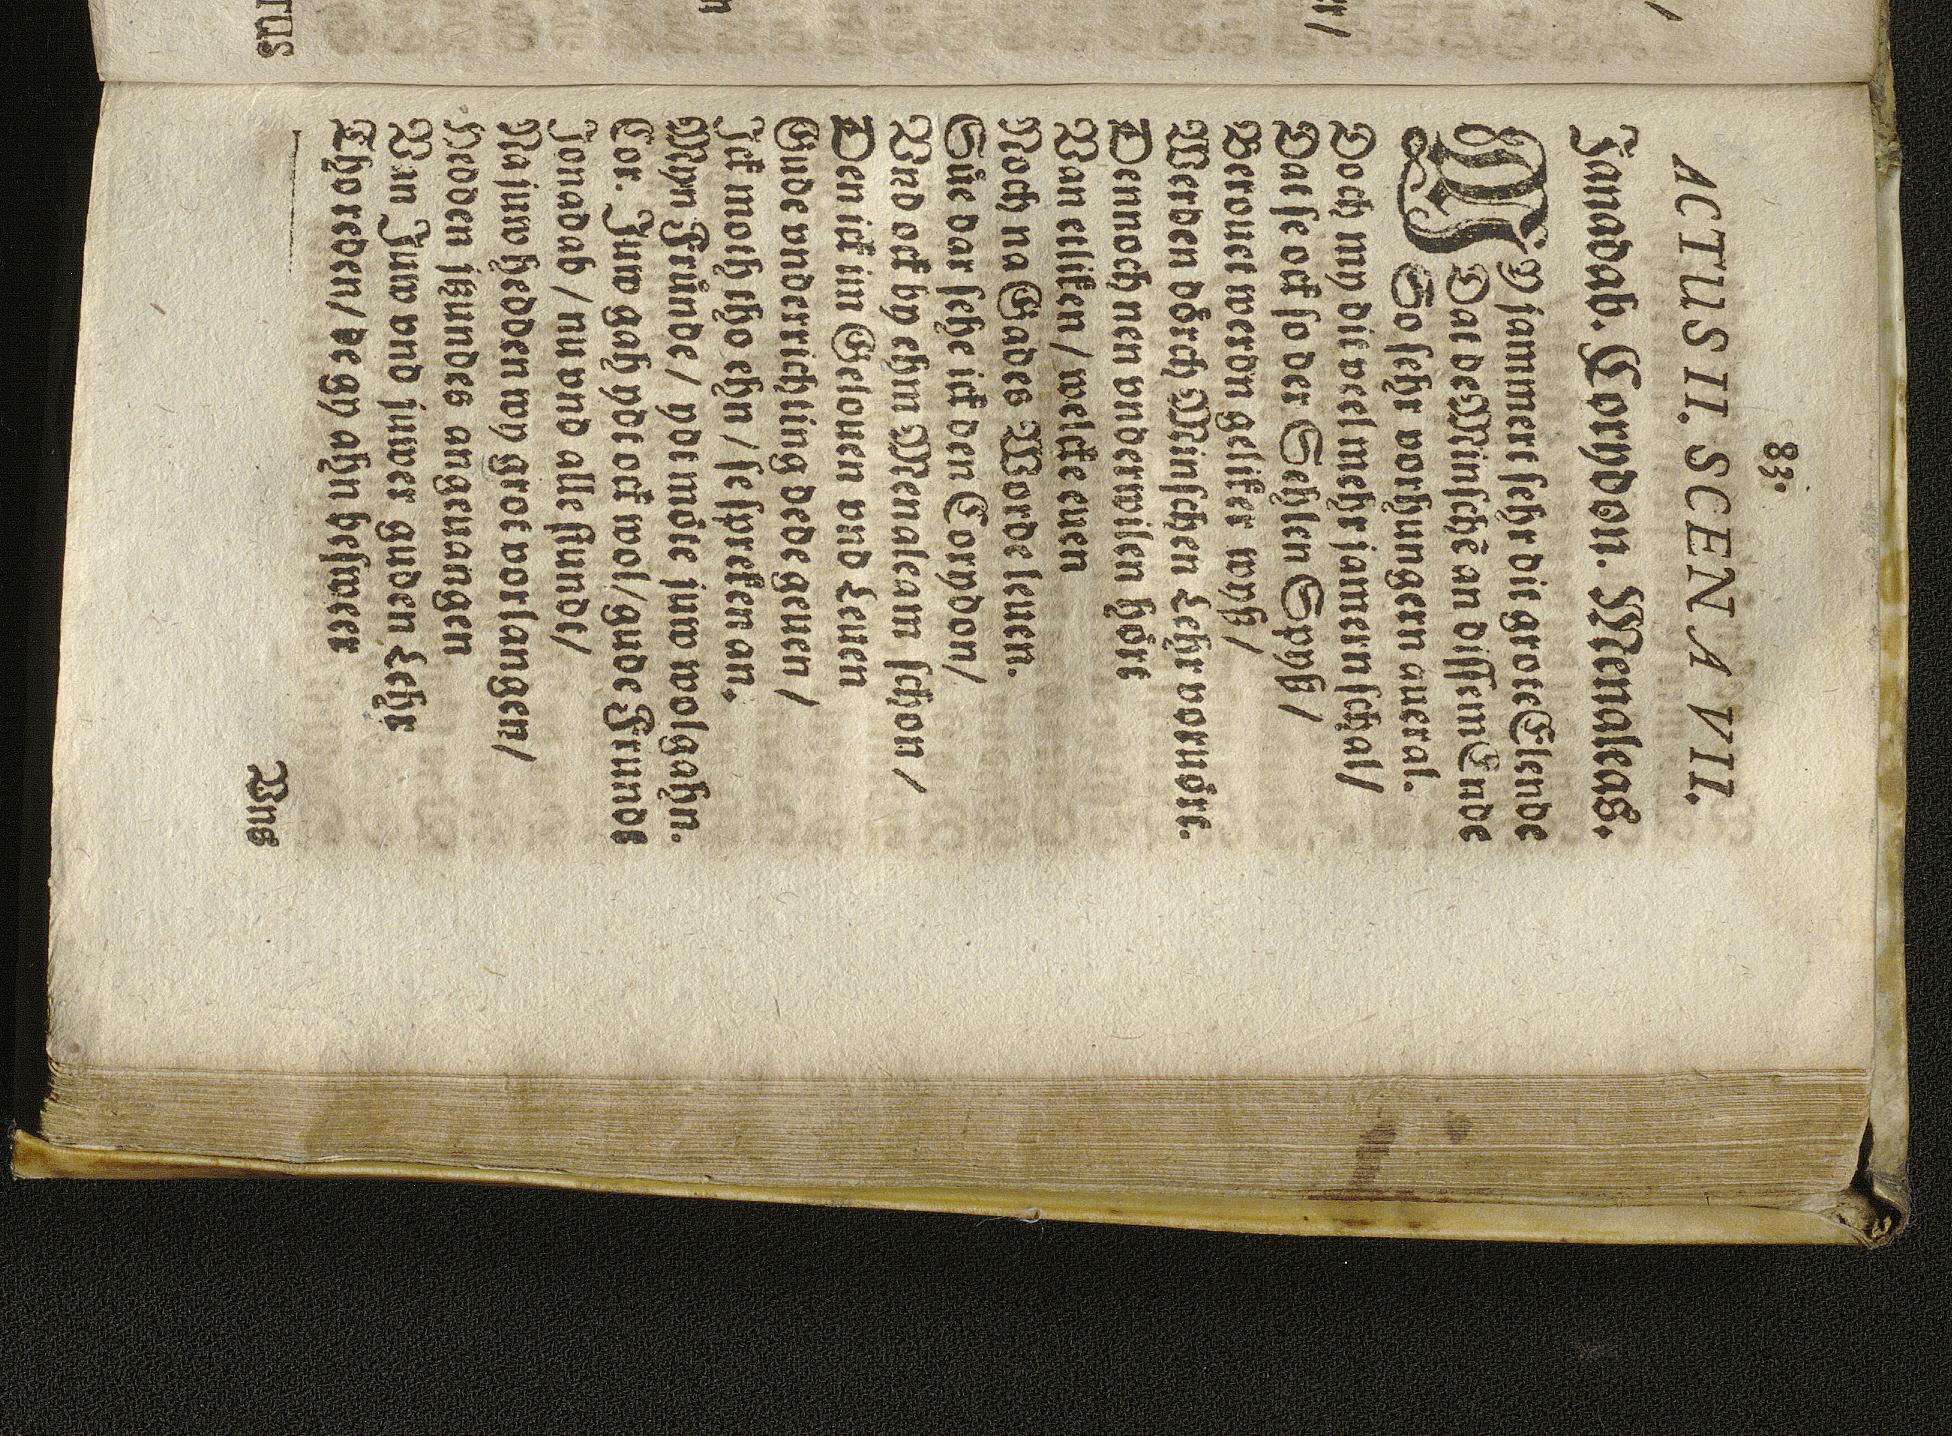 83.
ACTUS II. SCENA VII.
Janadab. Corydon. Menalcas.
MY jammert sehr dit grote Elende
Dat de Minschē an dissem Ende
So sehr vorhungern aueral.
Doch my dit veel mehr jamern schal/
Dat se ock so der Sehlen Spyß/
Berouet werdn geliker wyß/
Werden dörch Minschen Lehr voruört.
Dennoch nen underwilen hört
Van etliken / welcke euen
Noch na Gades Worde leuen.
Süe dar sehe ick den Corydon/
Vnd ock by ehm Menalcam schon /
Den ick im Gelouen vnd Leuen
Gude vnderrichting dede geuen /
Ick moth tho ehn / se spreken an.
Myn Fründe / ydt möte juw wol gahn.
Cor. Juw gah ydt ock wol / gude Frundt
Jonadab / nu vnd alle stundt/
Na juw hedden wy grot vorlangen/
Hedden itzundes angeuangen
Van Juw vnd juwer guden Lehr
Tho reden / de gy ahn beswer
Vns